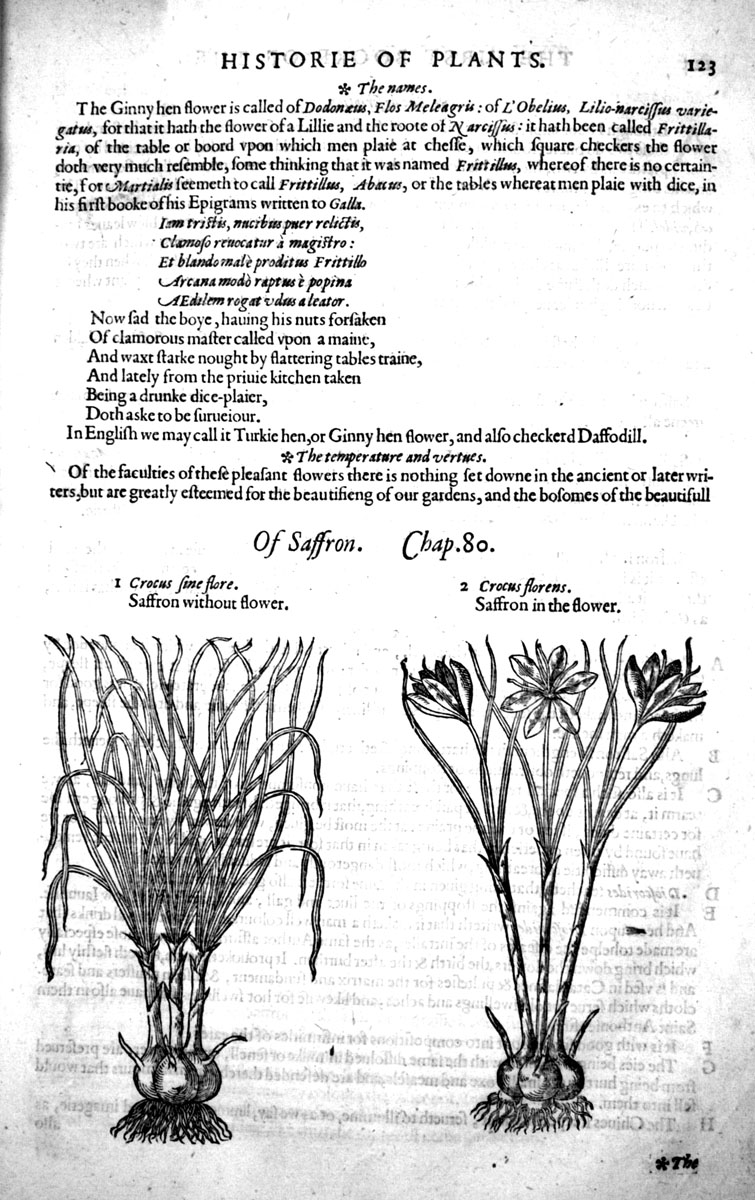 HISTORIE OF PLANTS. 123
✻ The names.
The Ginny hen flower is called of Dodonæus, Flos Meleagris: of L'Obelius, Lilio-narciſſus varie-
gatus, for that it hath the flower of a Lillie and the roote of Narciſſus: it hath been called Fritilla-
ria, of the table or boord vpon which men plaie at cheſſe, which ſquare checkers the flower
doth very much reſemble, ſome thinking that it was named Frittillus, whereof there is no certain-
tie, for Martialis ſeemeth to call Frittillus, Abacus, or the tables whereat men plaie with dice, in
his firſt booke of his Epigrams written to Galla.
Iam triſtis, nucibus puer relictis,
Clamoſo reuocatur à magiſtro:
Et blando malè proditus Frittillo
Arcana modò raptus è popina
AEdilem rogat vdus aleator.
Now ſad the boye, hauing his nuts forſaken
Of clamorous maſter called vpon a maine,
And waxt ſtarke nought by flattering tables traine,
And lately from the priuie kitchen taken
Being a drunke dice-plaier,
Doth aske to be ſurueiour.
In Engliſh we may call it Turkie hen, or Ginny hen flower, and alſo checkerd Daffodill.
✻ The temperature and vertues.
Of the faculties of theſe pleaſant flowers there is nothing ſet downe in the ancient or later wri-
ters, but are greatly eſteemed for the beautifieng of our gardens, and the boſomes of the beautifull
Of Saffron. Chap. 80.
1 Crocus ſine flore.
Saffron without flower.
2 Crocus florens.
Saffron in the flower.
✻ The